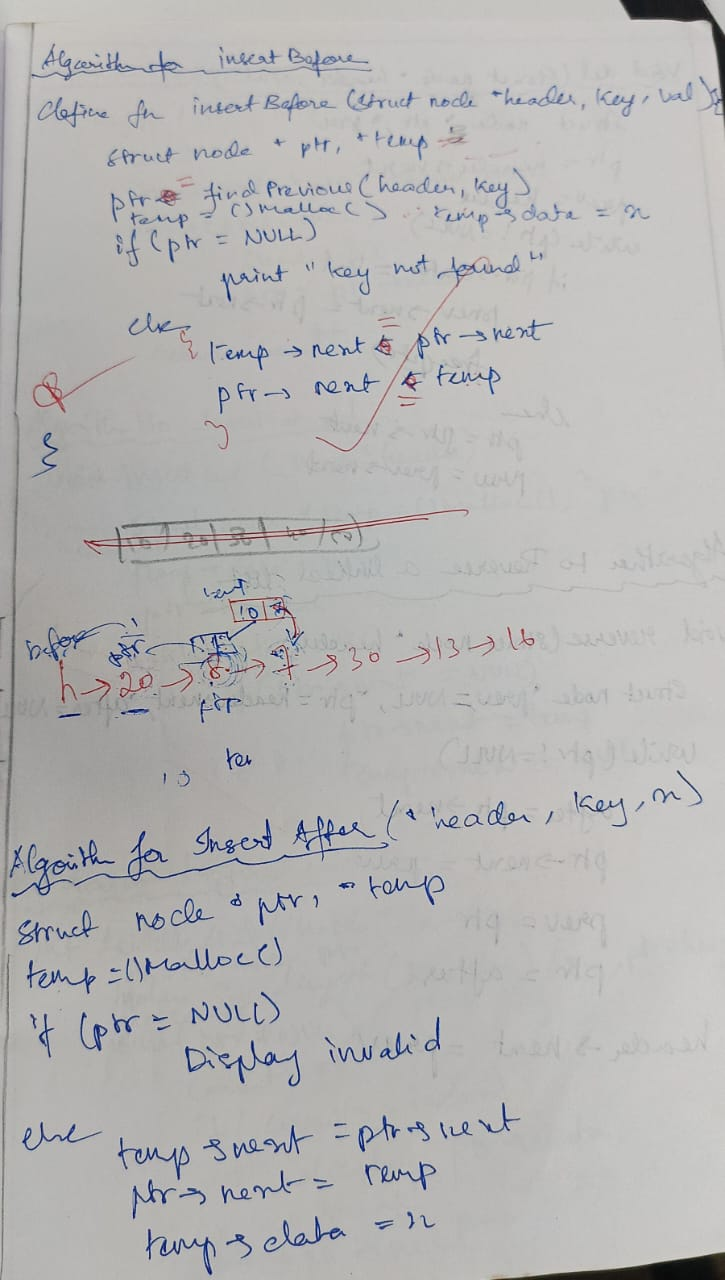 Algorithm for insert Before
define fn insertBefore (struct node *header, key, val){
struct node * ptr, *temp
ptr = find Previous (header, key)
temp = () malloc () temp→data = x
if (ptr = NULL)
print "key not found"
else
{ temp → next = ptr → next
ptr → next = temp
}
}
10 | 20 | 30 | 40 | 50
10
before ptr
h → 20 → 8 → 7 → 30 → 13 → 16
ptr
Algoith for Insert After (* header, key, x)
struct node * ptr, * temp
temp = () Malloc ()
if (ptr = NULL)
Display invalid
else
temp → next = ptr → next
ptr → next = temp
temp → data = x